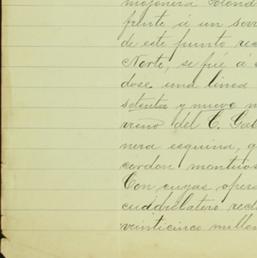 mojonera
frente á un
de este punto
Norte, se fué a
dose una linea
setenta y nueve
del C. Gab
nera esquina, q
cordon montuos
Con cuyas opera
cuadrilatero rect
veinticinco